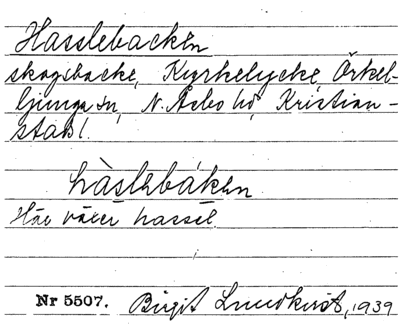 Hasslebacken
skogsbacke, Kyrkelycke, Örkel-
ljunga sn, N. Åsbo hd, Kristian-
stads l.
hàslebáken
Här växer hassel
Nr 5507. Birgit Lundkvist, 1939